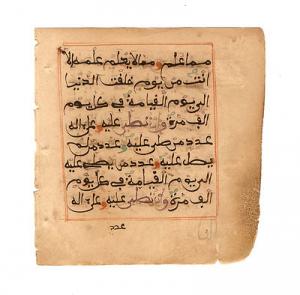 مما علم ومما لا يعلم علمه إلا
انت من يوم خلقت الدنيا
الى يوم القيامة في كل يوم
الف مرة وان تصلي عليه وعلى اله
عدد من صلى عليه وعدد من لم
يصل عليه وعدد من يصلي عليه
الى يوم القيامة في كل يوم
الف مرة وان تصلي عليه وعلى اله
عدد